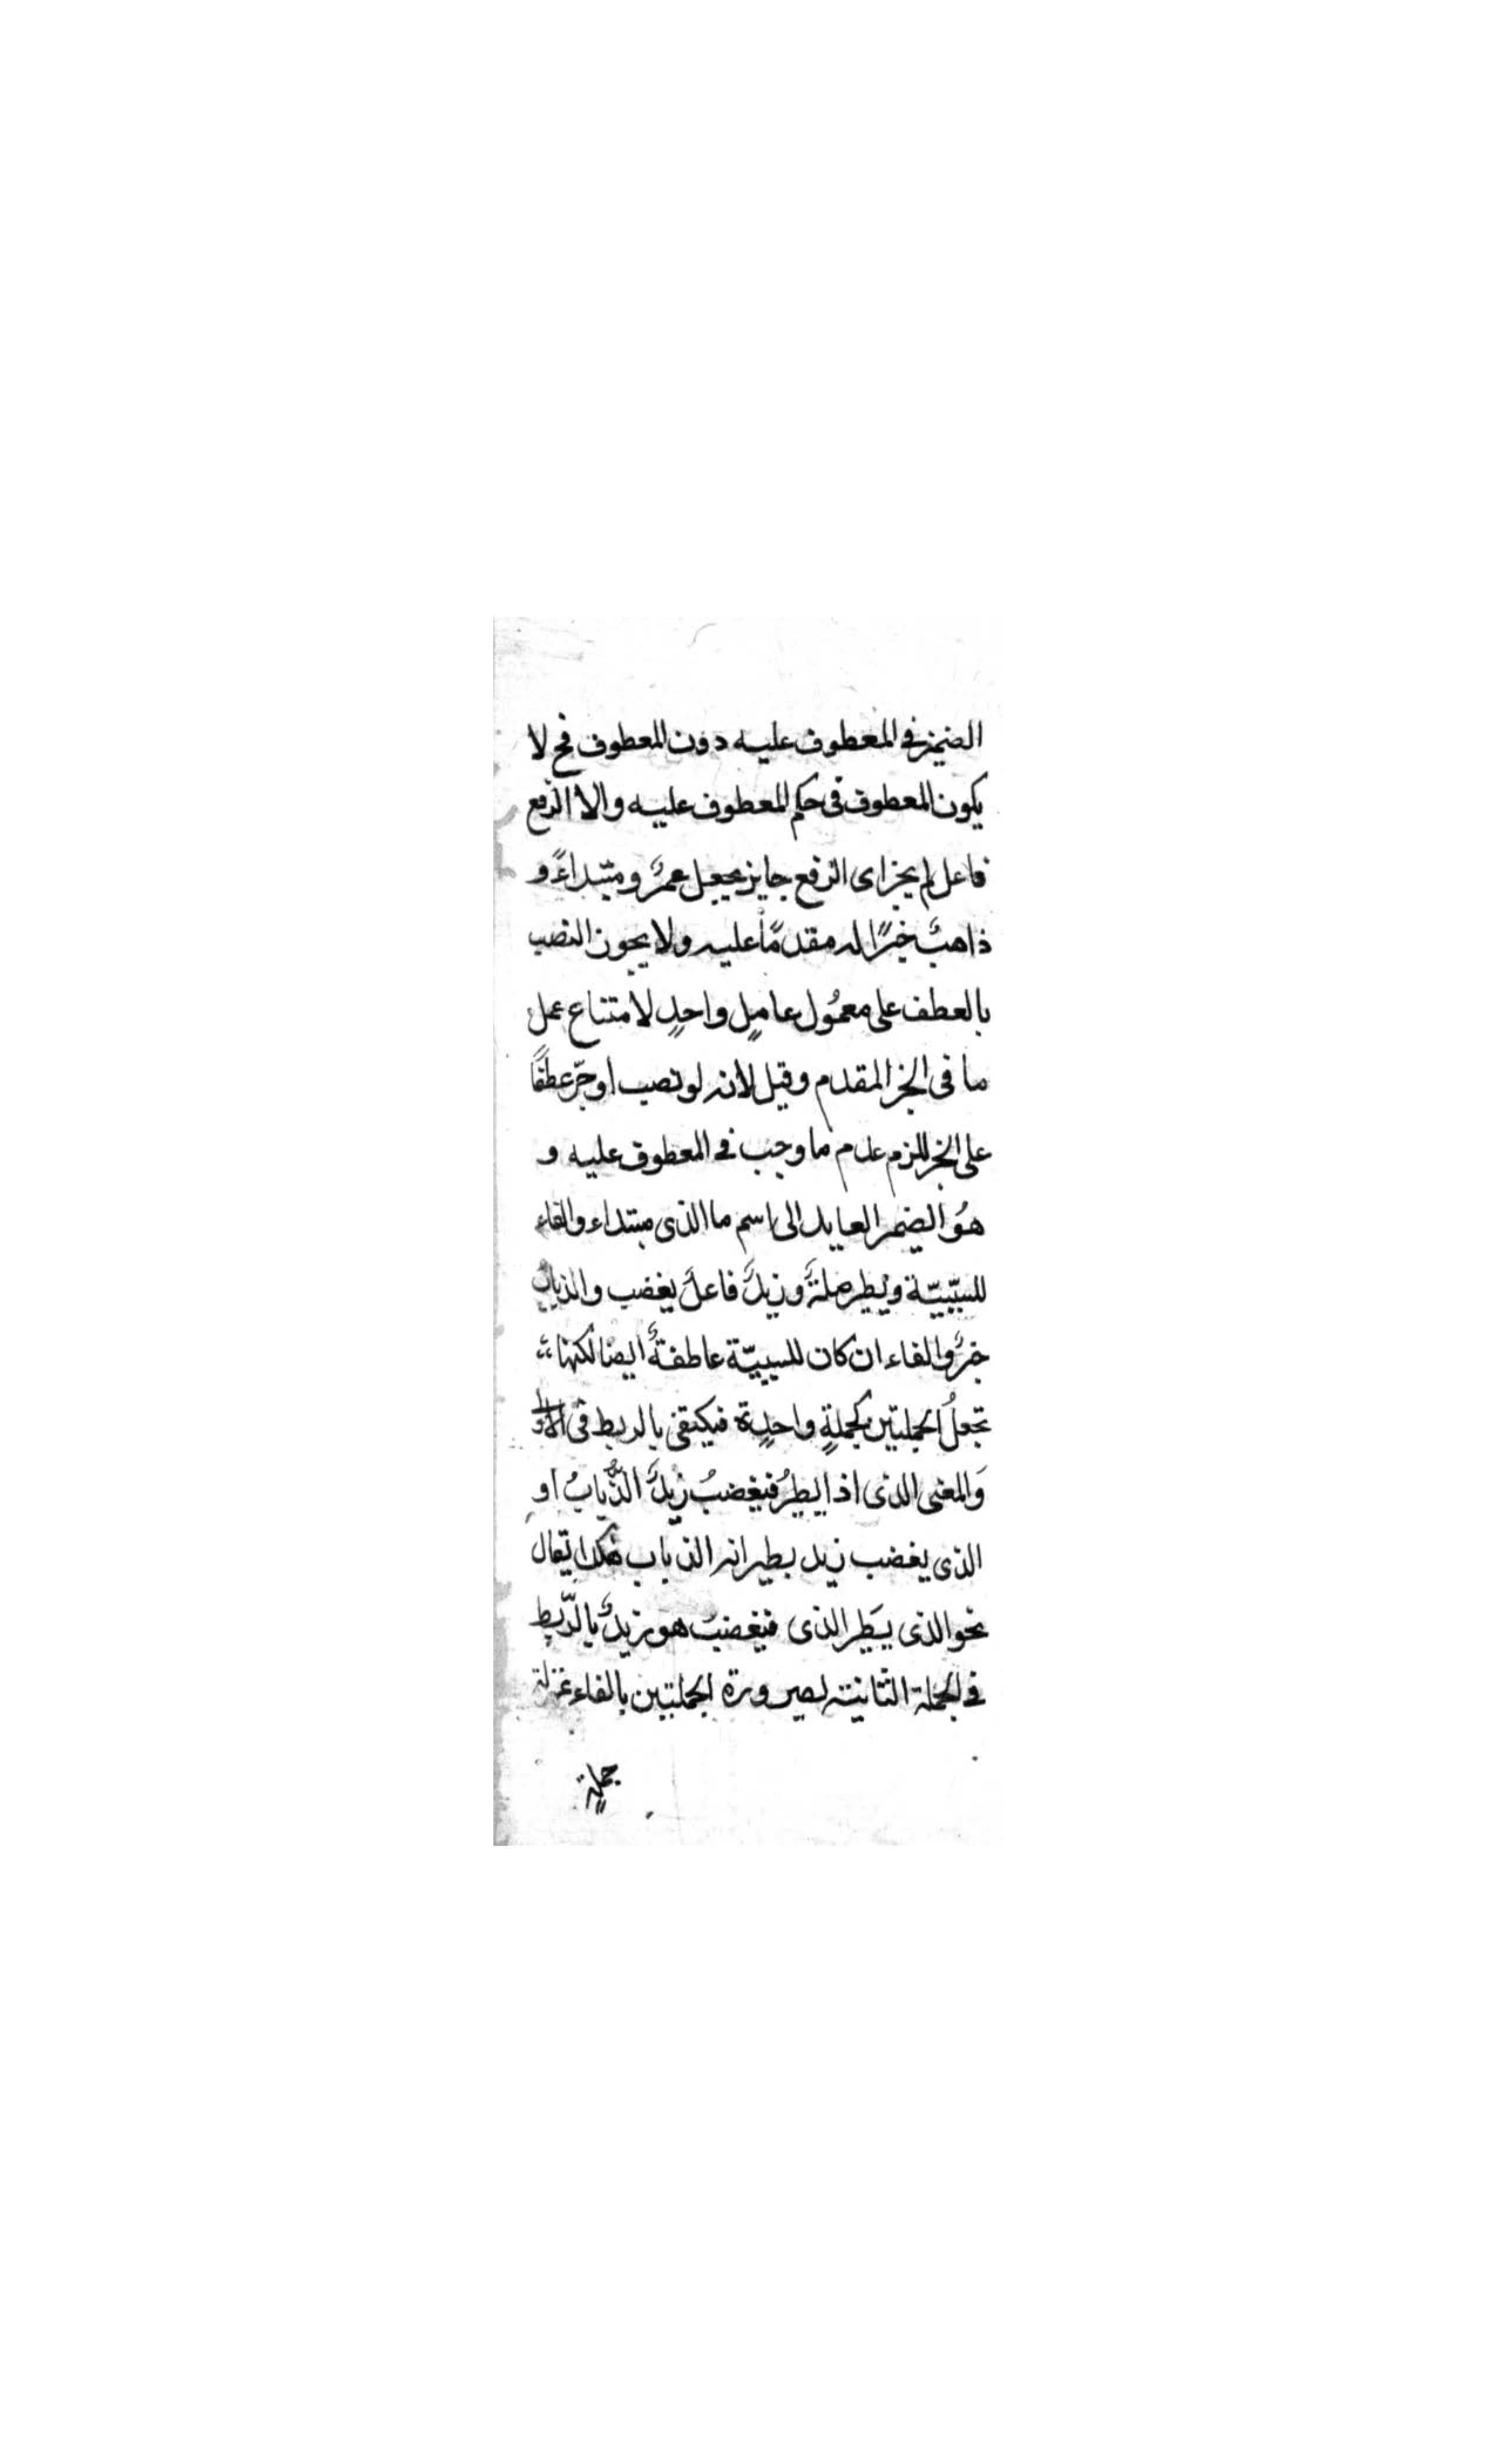 الضمير في المعطوف عليه دون المعطوف فح لا
يكون المعطوف في حكم المعطوف عليه والا الرفع
فاعل لم يجز اى الرفع جايز بجعل عمرٌو مبتداءً و
ذاهبٌ خبرًا له مقدمًا عليه ولا يجوز النصب
بالعطف على معمُول عاملٍ واحدٍ لامتناع عمل
ما فى الخبر المقدم وقيل لانه لو نصب او جرّ عطفًا
على الخبر للزم عدم ما وجب في المعطوف عليه و
هُو الضمير العايد الى اسم ما الذى مبتداء والفاء
للسبّبيّة ويطير صلةٌ وزيدٌ فاعلُ يغضب والذبابُ
خبرٌ والفاء ان كان للسببيّة عاطفةٌ ايضا لكنها
تجعلُ الجملتين كجملةٍ واحدٍة فيكتفى بالربط فى الاولى
وَالمعنى الذى اذا يطيرُ فيغضبُ زيدٌ الذُّبابُ او
الذى يغضب زيد بطيرانه الذباب هكذا يقال
نحو الذى يَطير الذى فيغضبُ هو زيدٌ بالرّبط
في الجملة الثانية لصيرورة الجملتين بالفاء بمنزلة
جملةٍ